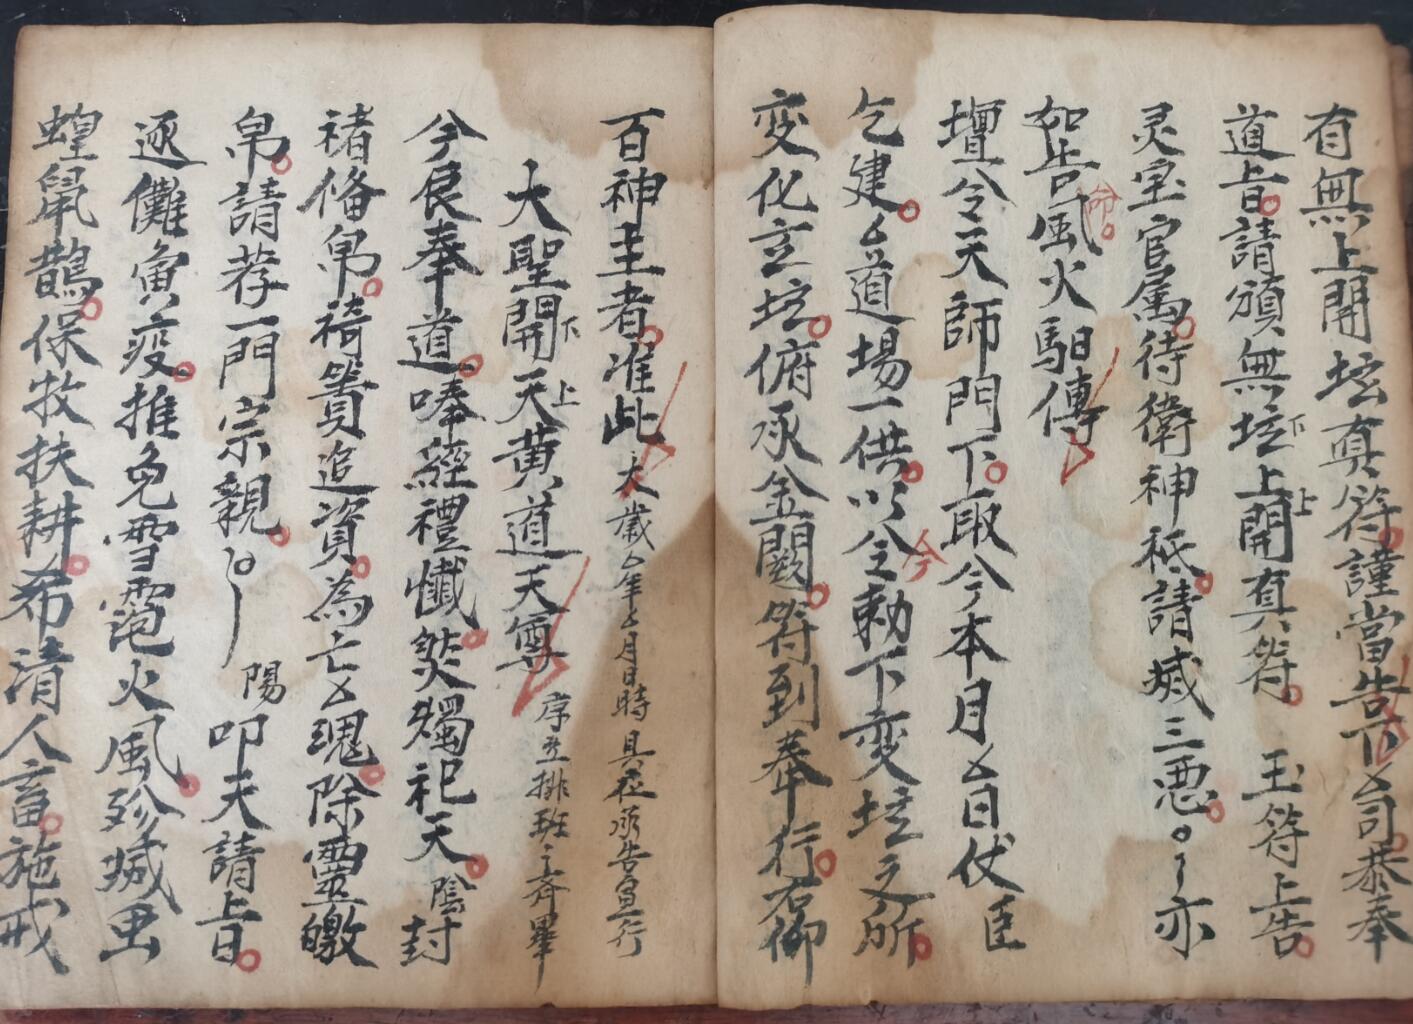 有無上開坛真符謹當告下厶司恭奉
道旨請頒無坛上開真符 玉符上告
灵宝官属待衛神祇請滅三恶 亦
如告風火馹傳
命
壇令天師門下取今本月厶日伏 臣
乞建厶道場一供以全勅下变坛之所
今
变化立坛俯承金闕符到奉行右仰
百神主者准此 大歲厶年厶月日時具位承告宣行
大聖開天黄道天尊 序立排班齊畢
下
上
今良奉道唪經禮懺焚燭祀天 陰 封
禇俻帛 追資為亡厶魂除靈皦
帛請荐一門宗親 陽 叩天請旨
逐儺寅疫推免雪雹火風殄滅虫
蝗鼠鵲保牧扶耕希清人畜施戒